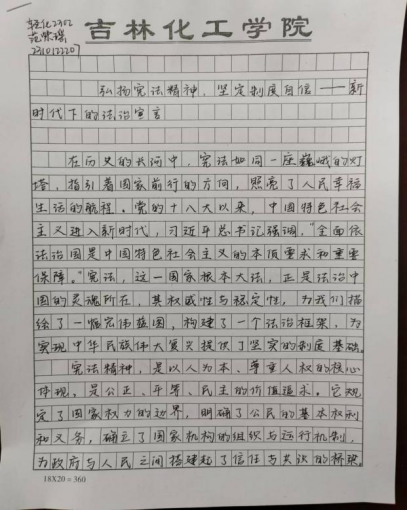 吉林化工学院
轻化2302
2310122207
弘扬宪法精神，坚定制度自信——新
时代下的法治宣言
在历史的长河中，宪法如同一座巍峨的灯
塔，指引着国家前行的方向，照亮了人民幸福
生活的航程。党的十八大以来，中国特色社会
主义进入新时代，习近平总书记强调，“全面依
法治国是中国特色社会主义的本质要求和重要
保障。”宪法，这一国家根本大法，正是法治中
国的灵魂所在，其权威性与稳定性，为我们描
绘了一幅宏伟蓝图，构建了一个法治框架，为
实现中华民族伟大复兴提供了坚实的制度基础。
宪法精神，是以人为本、尊重人权的核心
体现，是公正、平等、民主的价值追求。它规
定了国家权力的边界，明确了公民的基本权利
和义务，确立了国家机构的组织与运行机制，
为政府与人民之间搭建起了信任与共识的桥梁。
18X20=360